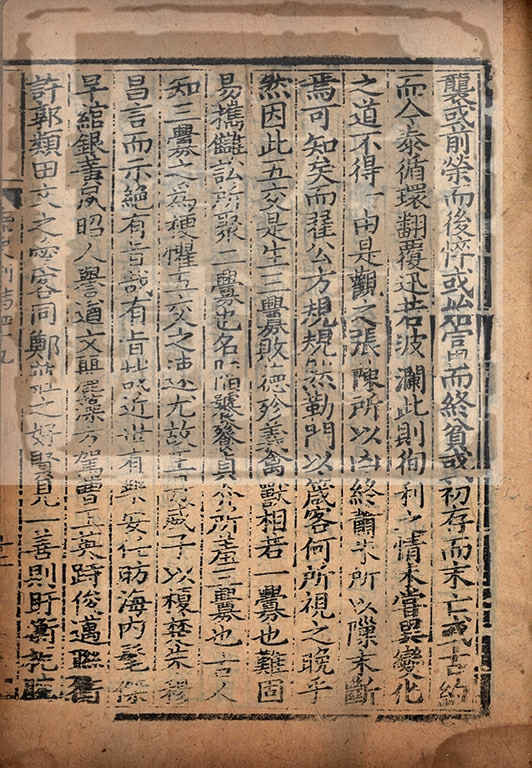 襲或前榮而後悴或始富而終貧或初存而末亡或古約
而今泰循環翻覆迅若波瀾此則徇利之情未嘗異變化
之道不得一由是觀之張陳所以凶終蕭朱所以隙末斷
焉可知矣而翟公方規規然勒門以箴客何所視之晚乎
然因此五交是生三釁敗德殄義禽獸相若一釁也難固
易攜讎訟所聚二釁也名陷饕餮貞介所羞三釁也古人
知三釁之為梗懼五交之速尤故王丹威子以檟楚朱穆
昌言而示絕有旨哉有旨哉近世有樂安任昉海內髦傑
早綰銀黃夙昭人譽遒文麗藻方駕曹王英跱俊邁聯
許郭類田文之愛客同鄭莊之好賢見一善則盱衡扼腕